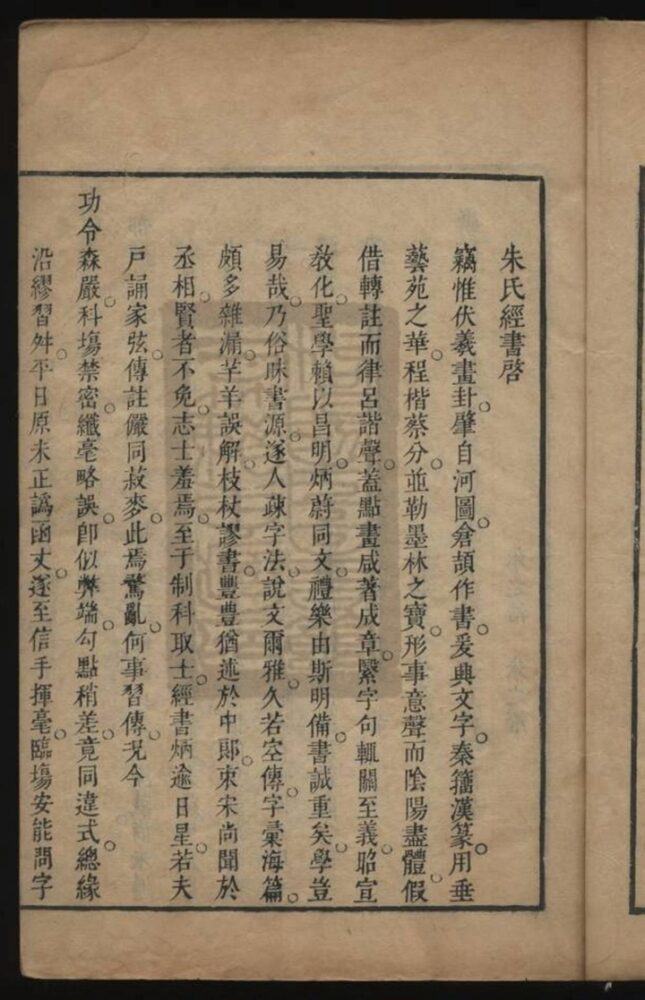 朱氏經書啓
竊惟伏羲畫卦肇自河圖倉頡作書爰典文字秦籀漢篆用垂
藝苑之華程楷蔡分並勒墨林之寶形事意聲而陰陽盡體假
借轉註而律呂諧聲蓋點畫咸著成章繄字句輒關至義昭宣
敎化聖學賴以昌明炳蔚同文禮樂由斯明備書誠重矣學豈
易哉乃俗昧書源遂人疎字法說文爾雅久若空傳字彙海篇
頗多雜漏芊羊誤解枝杖謬書豐豊猶迷於中郞東宋尚聞於
丞相賢者不免志士羞焉至于制科取士經書炳逾日星若夫
戶誦家弦傳註儼同菽麥此焉驚亂何事習傳況今
功令森嚴科塲禁密纖毫略誤卽似弊端勾點稍差竟同違式總緣
沿繆習舛平日原未正譌函丈遂至信手揮毫臨塲安能問字